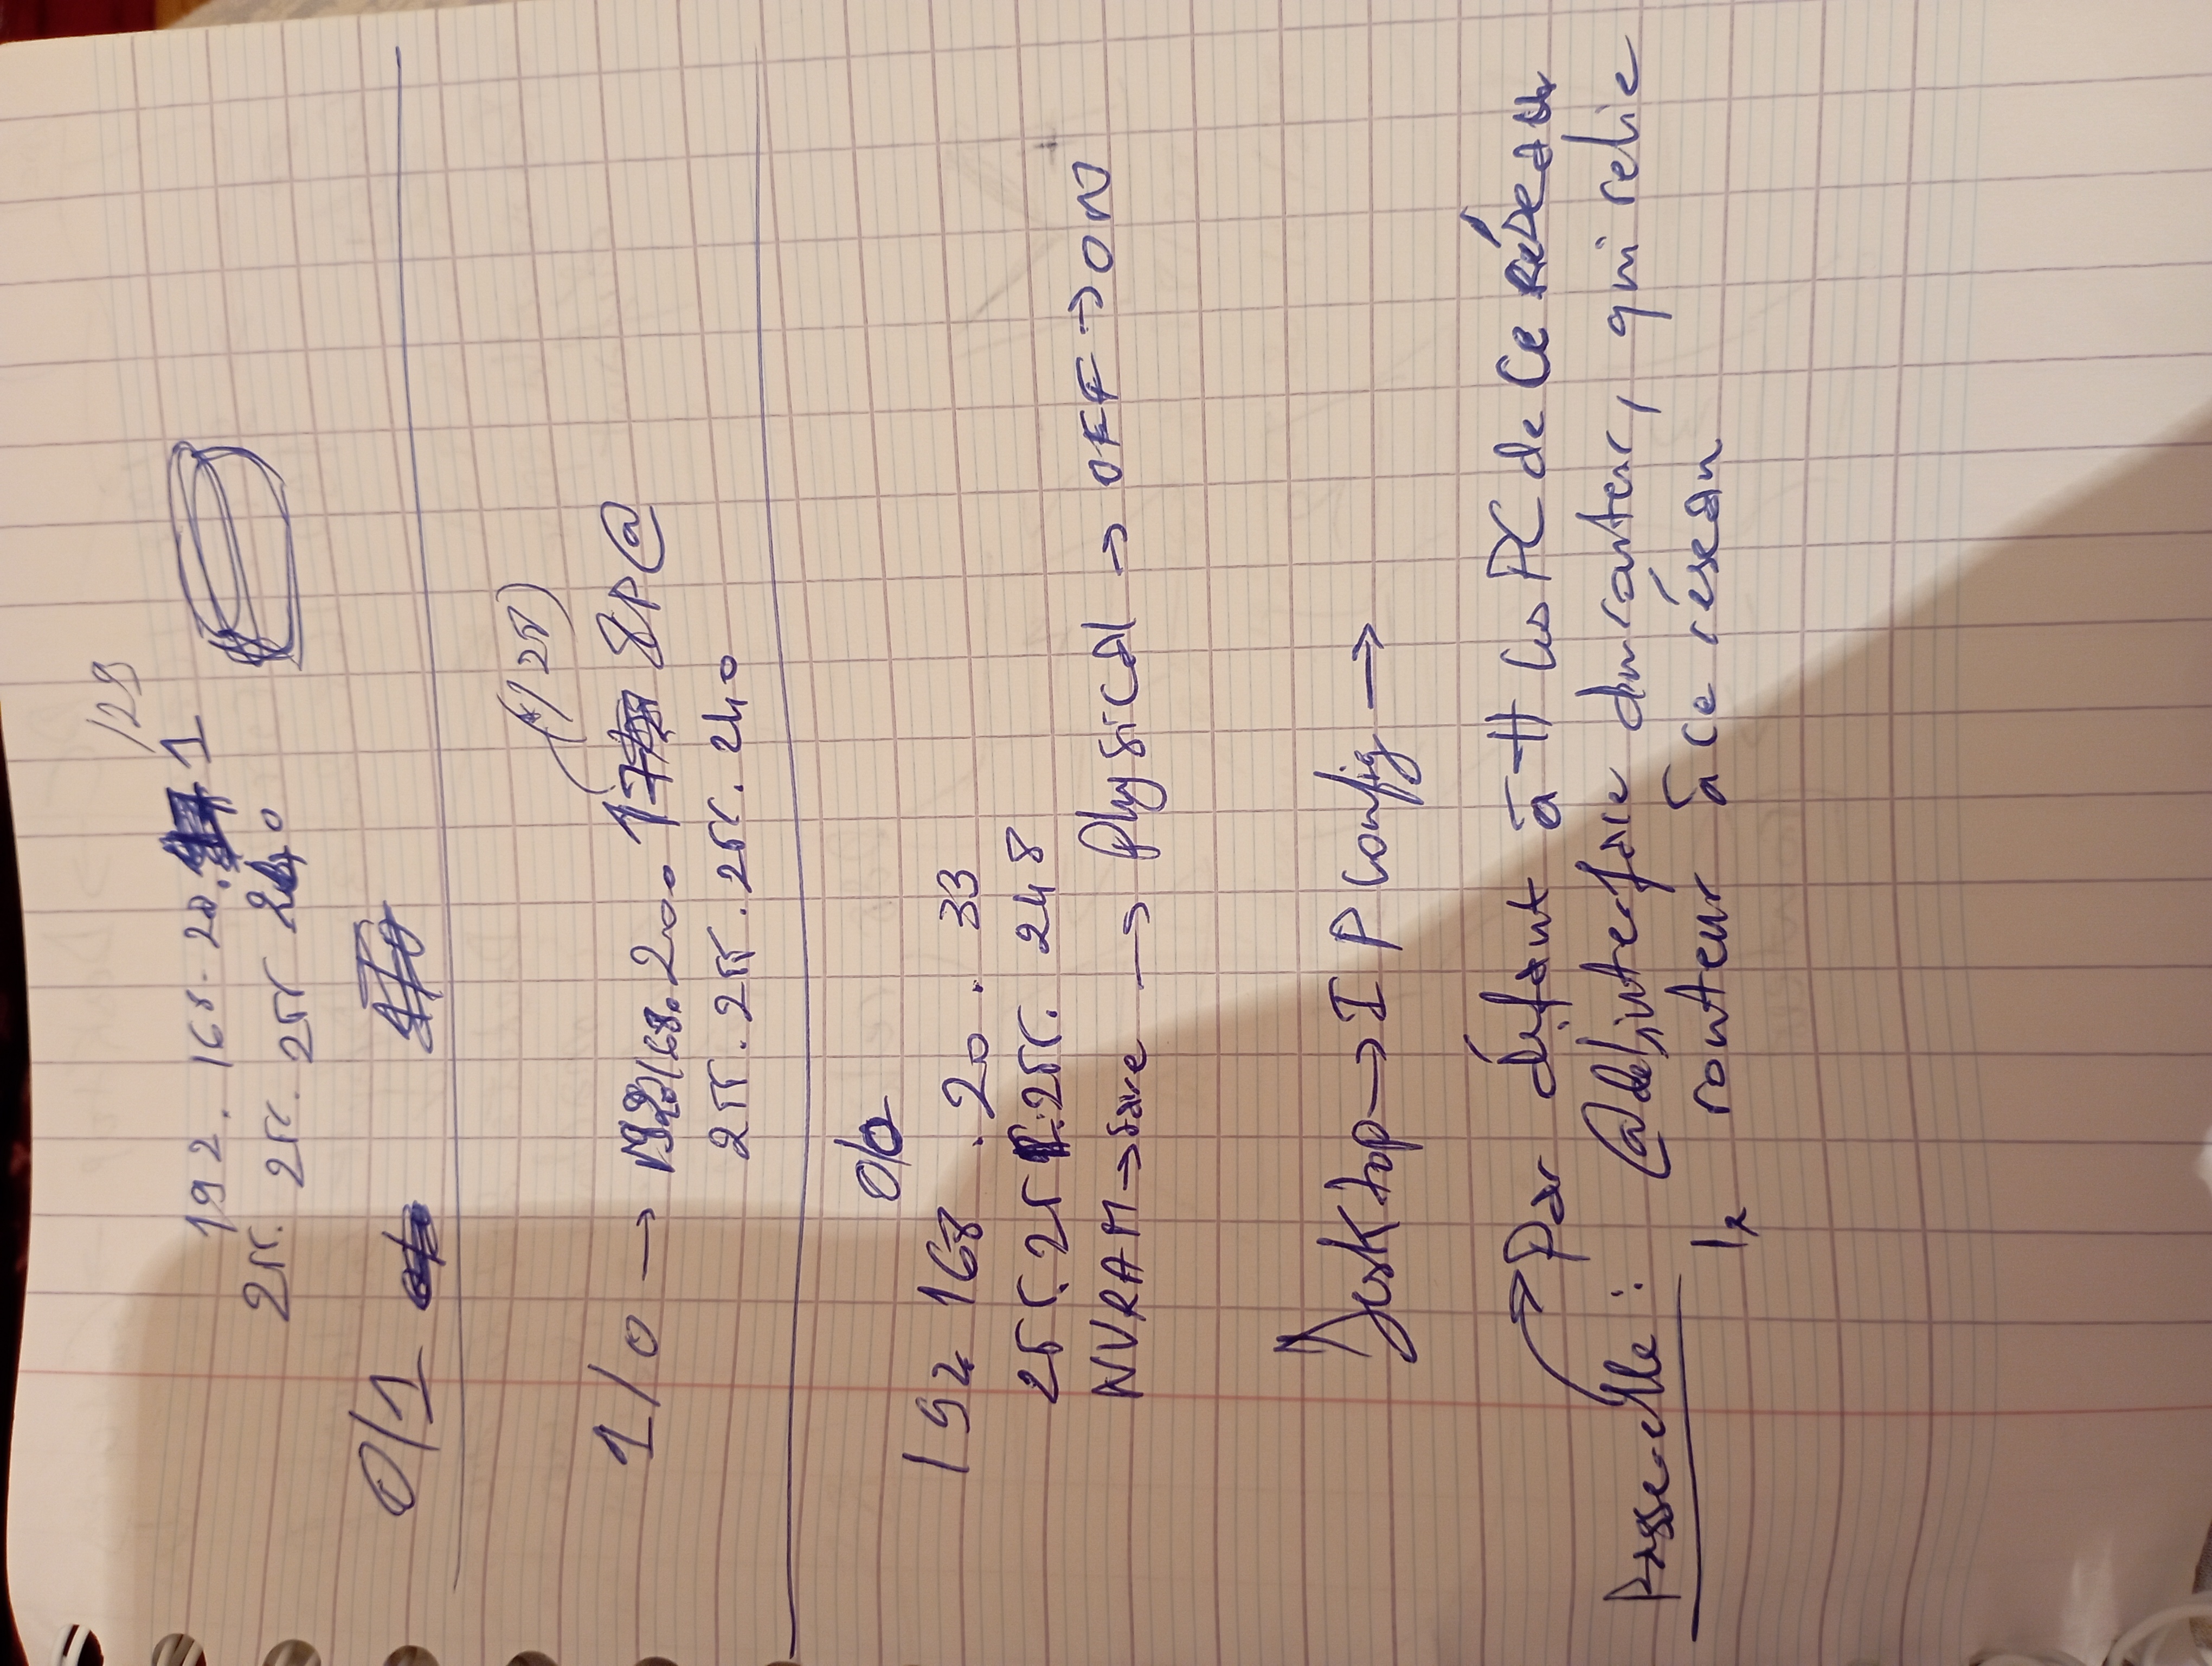 /28
192.168.20.1
255.255.255.240
0/1
(/28)
1/0 → 192.168.200.17 8P@
255.255.255.240
0/0
192 168.20.33
255.255.255.248
NVRAM → save → Physical → OFF → ON
Desktop → IP config →
Par défaut à tt les PC de ce réseau
Passerelle : (@ de l'interface du routeur, qui relie
le routeur à ce réseau